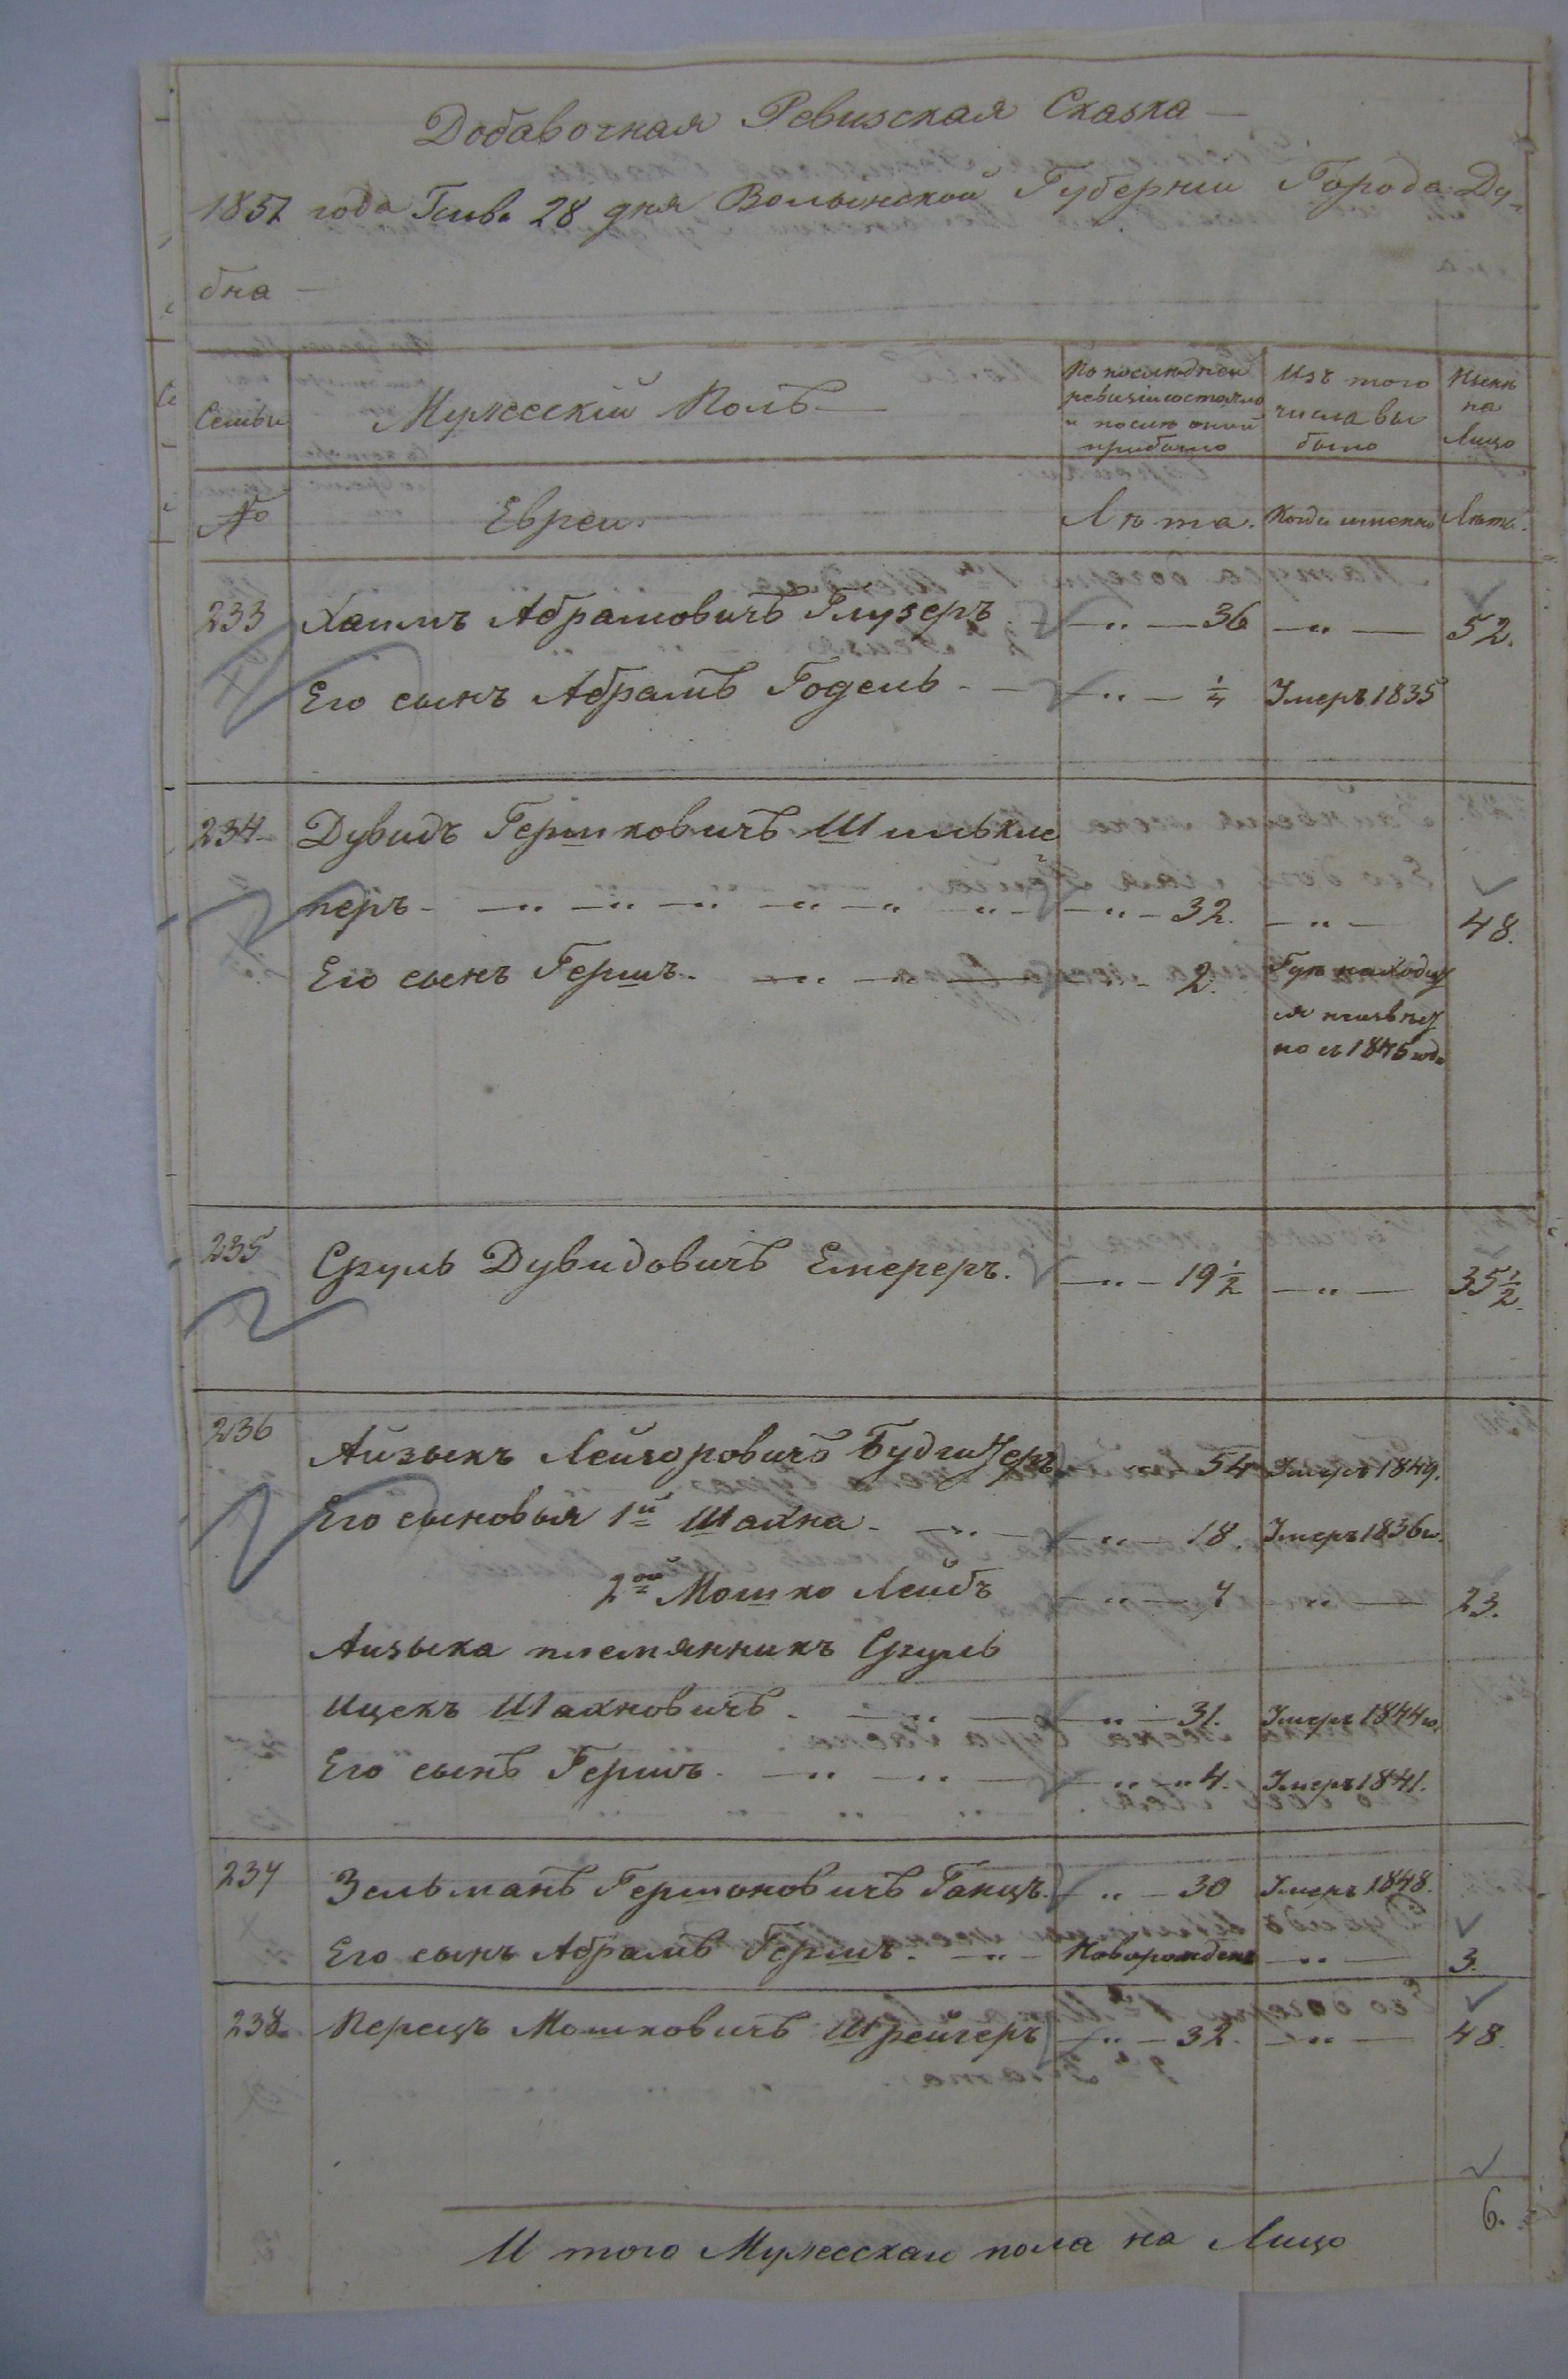 Добавочная Ревизская Сказка —
1851 года Генв. 28 дня Волынской Губернии Города Ду-
бна —
Семьи
Мужескій Полъ —
По последней ревизіи состояло и после оной прибыло
Изъ того числа вы было
Ныне на Лицо
№
Евреи.
Лета.
Когда именно
Летъ.
233 Хаимъ Абрамовичъ Глузеръ — " — 36 — " — 52.
Его сынъ Абрамъ Годель - — " — ¼ Умеръ 1835
234 Дувидъ Гершковичъ Шмиькле
перъ - — " — " — " — " — " — " — 32. — " — 48.
Его сынъ Гершъ. — " — " — 2.
но съ 1845 года
235 Сруль Дувидовичъ Емереръ. — " — 19 ½ — " — 35 ½.
236 Айзыкъ Лейзоровичъ — " — 54 Умеръ 1849.
Его сыновья 1й Шахна - — " — " — 18. Умеръ 1836 го.
2ой Мошко Лейбъ — " — 7 — " — 23.
Айзыка племянникъ Сруль
Ицекъ Шахновичъ. — " — " — 31. Умеръ 1844 го.
Его сынъ Гершъ. — " — " — " — 4. Умеръ 1841.
237 Зельманъ Гершоновичъ Ганцъ. — " — 30 Умеръ 1848.
Его сынъ Абрамъ Гершъ. — " — Новорожденъ — " — 3.
238. Перецъ Мошковичъ Шрейгеръ — " — 32. — " — 48.
И того Мужескаго пола на Лицо 6.